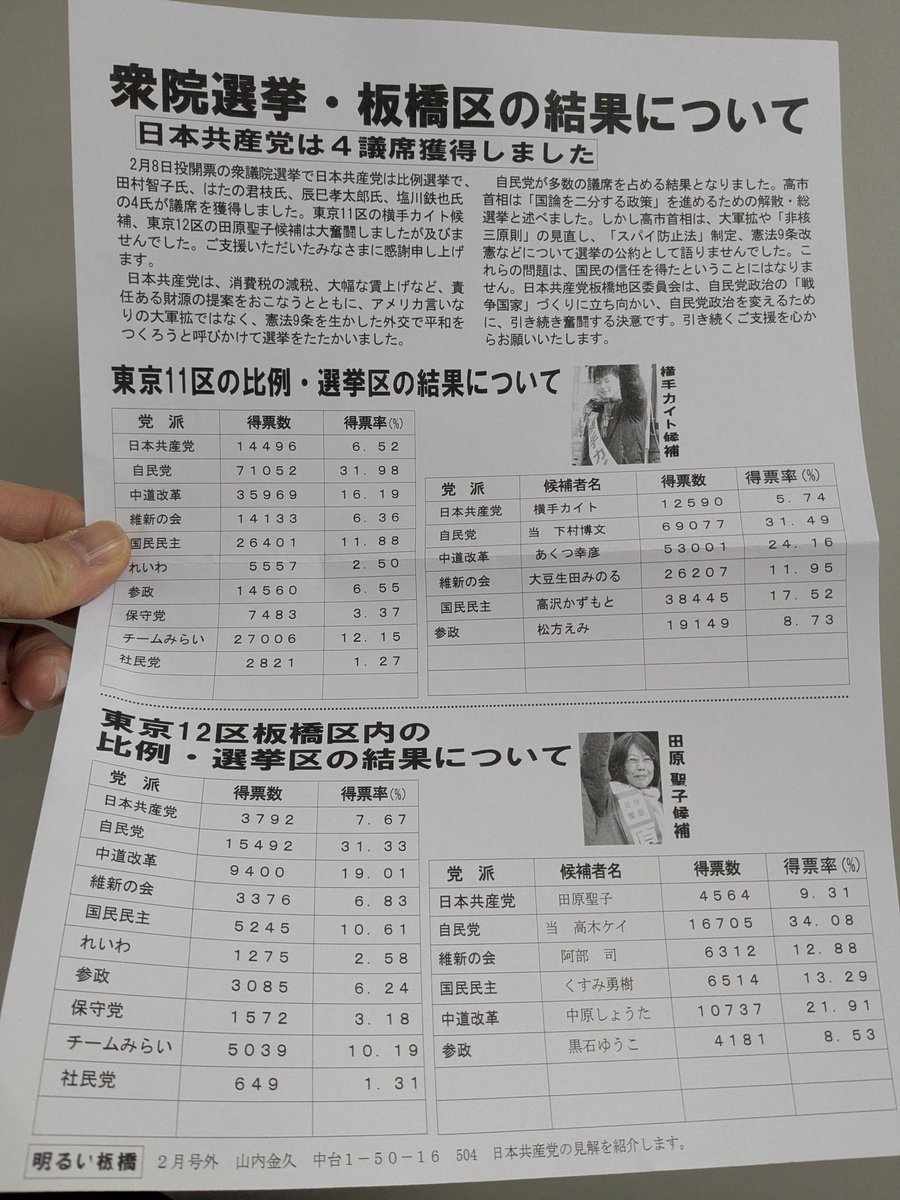 衆院選挙・板橋区の結果について
日本共産党は４議席獲得しました
2月8日投開票の衆議院選挙で日本共産党は比例選挙で、
田村智子氏、はたの君枝氏、辰巳孝太郎氏、塩川鉄也氏
の4氏が議席を獲得しました。東京11区の横手カイト候
補、東京12区の田原聖子候補は大奮闘しましたが及びま
せんでした。ご支援いただいたみなさまに感謝申し上げ
ます。
日本共産党は、消費税の減税、大幅な賃上げなど、責
任ある財源の提案をおこなうとともに、アメリカ言いな
りの大軍拡ではなく、憲法9条を生かした外交で平和を
つくろうと呼びかけて選挙をたたかいました。
自民党が多数の議席を占める結果となりました。高市
首相は「国論を二分する政策」を進めるための解散・総
選挙と述べました。しかし高市首相は、大軍拡や「非核
三原則」の見直し、「スパイ防止法」制定、憲法9条改
憲などについて選挙の公約として語りませんでした。こ
れらの問題は、国民の信任を得たということにはなりま
せん。日本共産党板橋地区委員会は、自民党政治の「戦
争国家」づくりに立ち向かい、自民党政治を変えるため
に、引き続き奮闘する決意です。引き続くご支援を心か
らお願いいたします。
東京11区の比例・選挙区の結果について
横手カイト候補
党　派　得票数　得票率(%)
日本共産党　14496　6.52
自民党　71052　31.98
中道改革　35969　16.19
維新の会　14133　6.36
国民民主　26401　11.88
れいわ　5557　2.50
参政　14560　6.55
保守党　7483　3.37
チームみらい　27006　12.15
社民党　2821　1.27
党　派　候補者名　得票数　得票率(%)
日本共産党　横手カイト　12590　5.74
自民党　当　下村博文　69077　31.49
中道改革　あくつ幸彦　53001　24.16
維新の会　大豆生田みのる　26207　11.95
国民民主　高沢かずもと　38445　17.52
参政　松方えみ　19149　8.73
東京12区板橋区内の
比例・選挙区の結果について
田原聖子候補
党　派　得票数　得票率(%)
日本共産党　3792　7.67
自民党　15492　31.33
中道改革　9400　19.01
維新の会　3376　6.83
国民民主　5245　10.61
れいわ　1275　2.58
参政　3085　6.24
保守党　1572　3.18
チームみらい　5039　10.19
社民党　649　1.31
党　派　候補者名　得票数　得票率(%)
日本共産党　田原聖子　4564　9.31
自民党　当　高木ケイ　16705　34.08
維新の会　阿部　司　6312　12.88
国民民主　くすみ勇樹　6514　13.29
中道改革　中原しょうた　10737　21.91
参政　黒石ゆうこ　4181　8.53
明るい板橋　２月号外　山内金久　中台１−５０−１６　504　日本共産党の見解を紹介します。